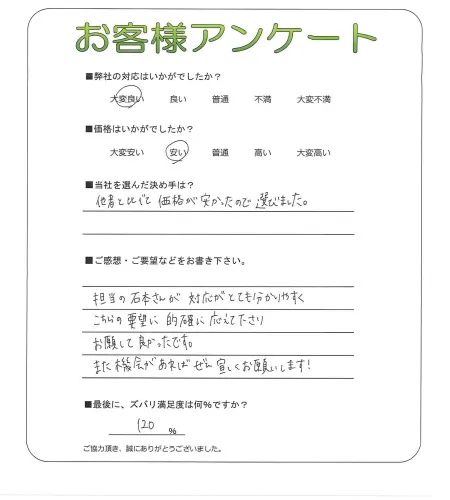 お客様アンケート
■弊社の対応はいかがでしたか？
大変良い 良い 普通 不満 大変不満
■価格はいかがでしたか？
大変安い 安い 普通 高い 大変高い
■当社を選んだ決め手は？
他者と比べて 価格が安かったので 選びました。
■ご感想・ご要望などをお書き下さい。
担当の石本さんが 対応がとても分かりやすく
こちらの要望に 的確に 応えて下さり
お願いして良かったです。
また機会があればぜひ宜しくお願いします!
■最後に、ズバリ満足度は何%ですか？
120 %
ご協力頂き、誠にありがとうございました。